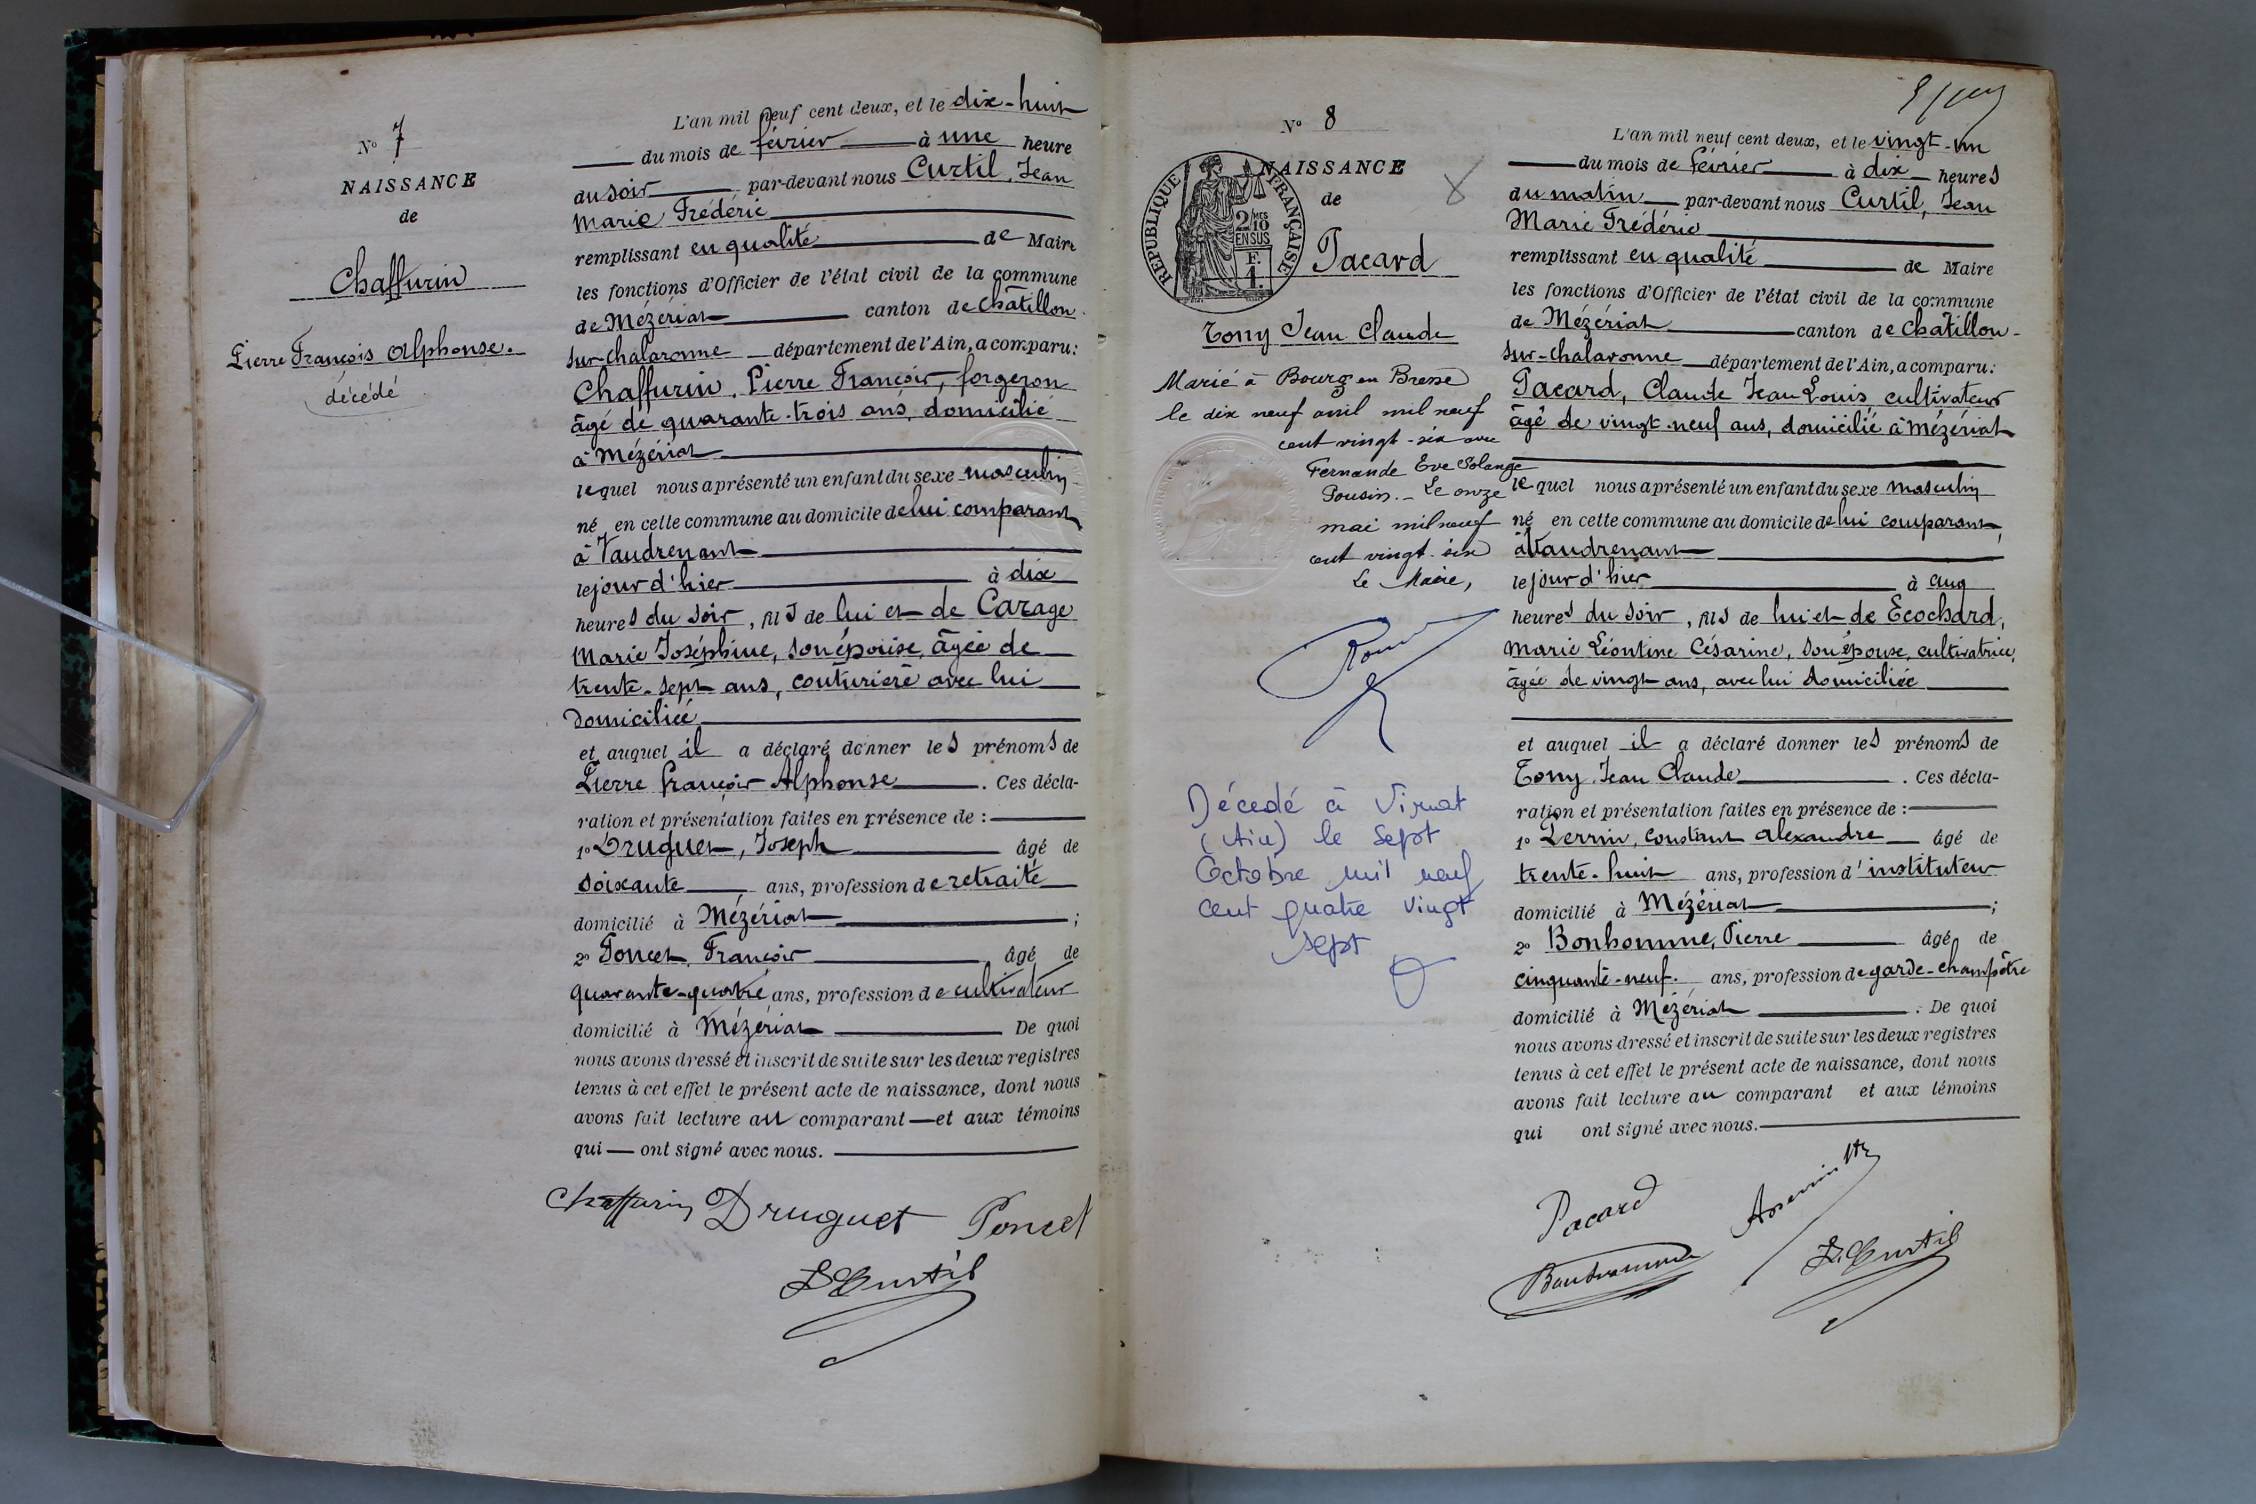 L'an mil neuf cent deux, et le dix-huit
du mois de février à une heure
du soir par-devant nous Curtil, Jean
Marie Frédéric
remplissant en qualité de Maire
les fonctions d'Officier de l'état civil de la commune
de Mézériat canton de Châtillon
sur-Chalaronne département de l'Ain, a comparu:
Chaffurin, Pierre François, forgeron
âgé de quarante-trois ans, domicilié
à Mézériat
lequel nous a présenté un enfant du sexe masculin
né en cette commune au domicile de lui comparant
à Vaudrenant
le jour d'hier à dix
heures du soir, fils de lui et de Carage
Marie Joséphine, son épouse, âgée de
trente-sept ans, couturière avec lui
domiciliée
et auquel il a déclaré donner les prénoms de
Pierre François Alphonse. Ces décla-
ration et présentation faites en présence de :
1º Druguet, Joseph âgé de
soixante ans, profession de retraité
domicilié à Mézériat ;
2º Poncet, François âgé de
quarante-quatre ans, profession de cultivateur
domicilié à Mézériat De quoi
nous avons dressé et inscrit de suite sur les deux registres
tenus à cet effet le présent acte de naissance, dont nous
avons fait lecture au comparant — et aux témoins
qui — ont signé avec nous.
Chaffurin Druguet Poncet
Curtil
Nº 7
NAISSANCE
de
Chaffurin
Pierre François Alphonse.
décédé
Nº 8
NAISSANCE
de
Pacard
Tony Jean Claude
RÉPUBLIQUE FRANÇAISE
2/10 MES
EN SUS
F.
1.
Marié à Bourg en Bresse
le dix neuf avril mil neuf
cent vingt-six avec
Fernande Eve Solange
Pousin. - Le onze
mai mil neuf
cent vingt-six
Le Maire,
Décedé à Viriat
(Ain) le Sept
Octobre mil neuf
cent quatre vingt
sept
L'an mil neuf cent deux, et le vingt-un
du mois de février à dix heures
du matin par-devant nous Curtil, Jean
Marie Frédéric
remplissant en qualité de Maire
les fonctions d'Officier de l'état civil de la commune
de Mézériat canton de Châtillon-
sur-Chalaronne département de l'Ain, a comparu:
Pacard, Claude Jean Louis, cultivateur
âgé de vingt-neuf ans, domicilié à Mézériat
lequel nous a présenté un enfant du sexe masculin
né en cette commune au domicile de lui comparant,
à Vaudrenant
le jour d'hier à cinq
heures du soir, fils de lui et de Ecochard,
Marie Léontine Césarine, son épouse, cultivatrice,
âgée de vingt ans, avec lui domiciliée
et auquel il a déclaré donner les prénoms de
Tony Jean Claude. Ces décla-
ration et présentation faites en présence de :
1º Perrin, Constant Alexandre âgé de
trente-huit ans, profession d'instituteur
domicilié à Mézériat ;
2º Bonhomme, Pierre âgé de
cinquante-neuf. ans, profession de garde-champêtre
domicilié à Mézériat . De quoi
nous avons dressé et inscrit de suite sur les deux registres
tenus à cet effet le présent acte de naissance, dont nous
avons fait lecture au comparant et aux témoins
qui ont signé avec nous.
Pacard
Bonhomme
Curtil